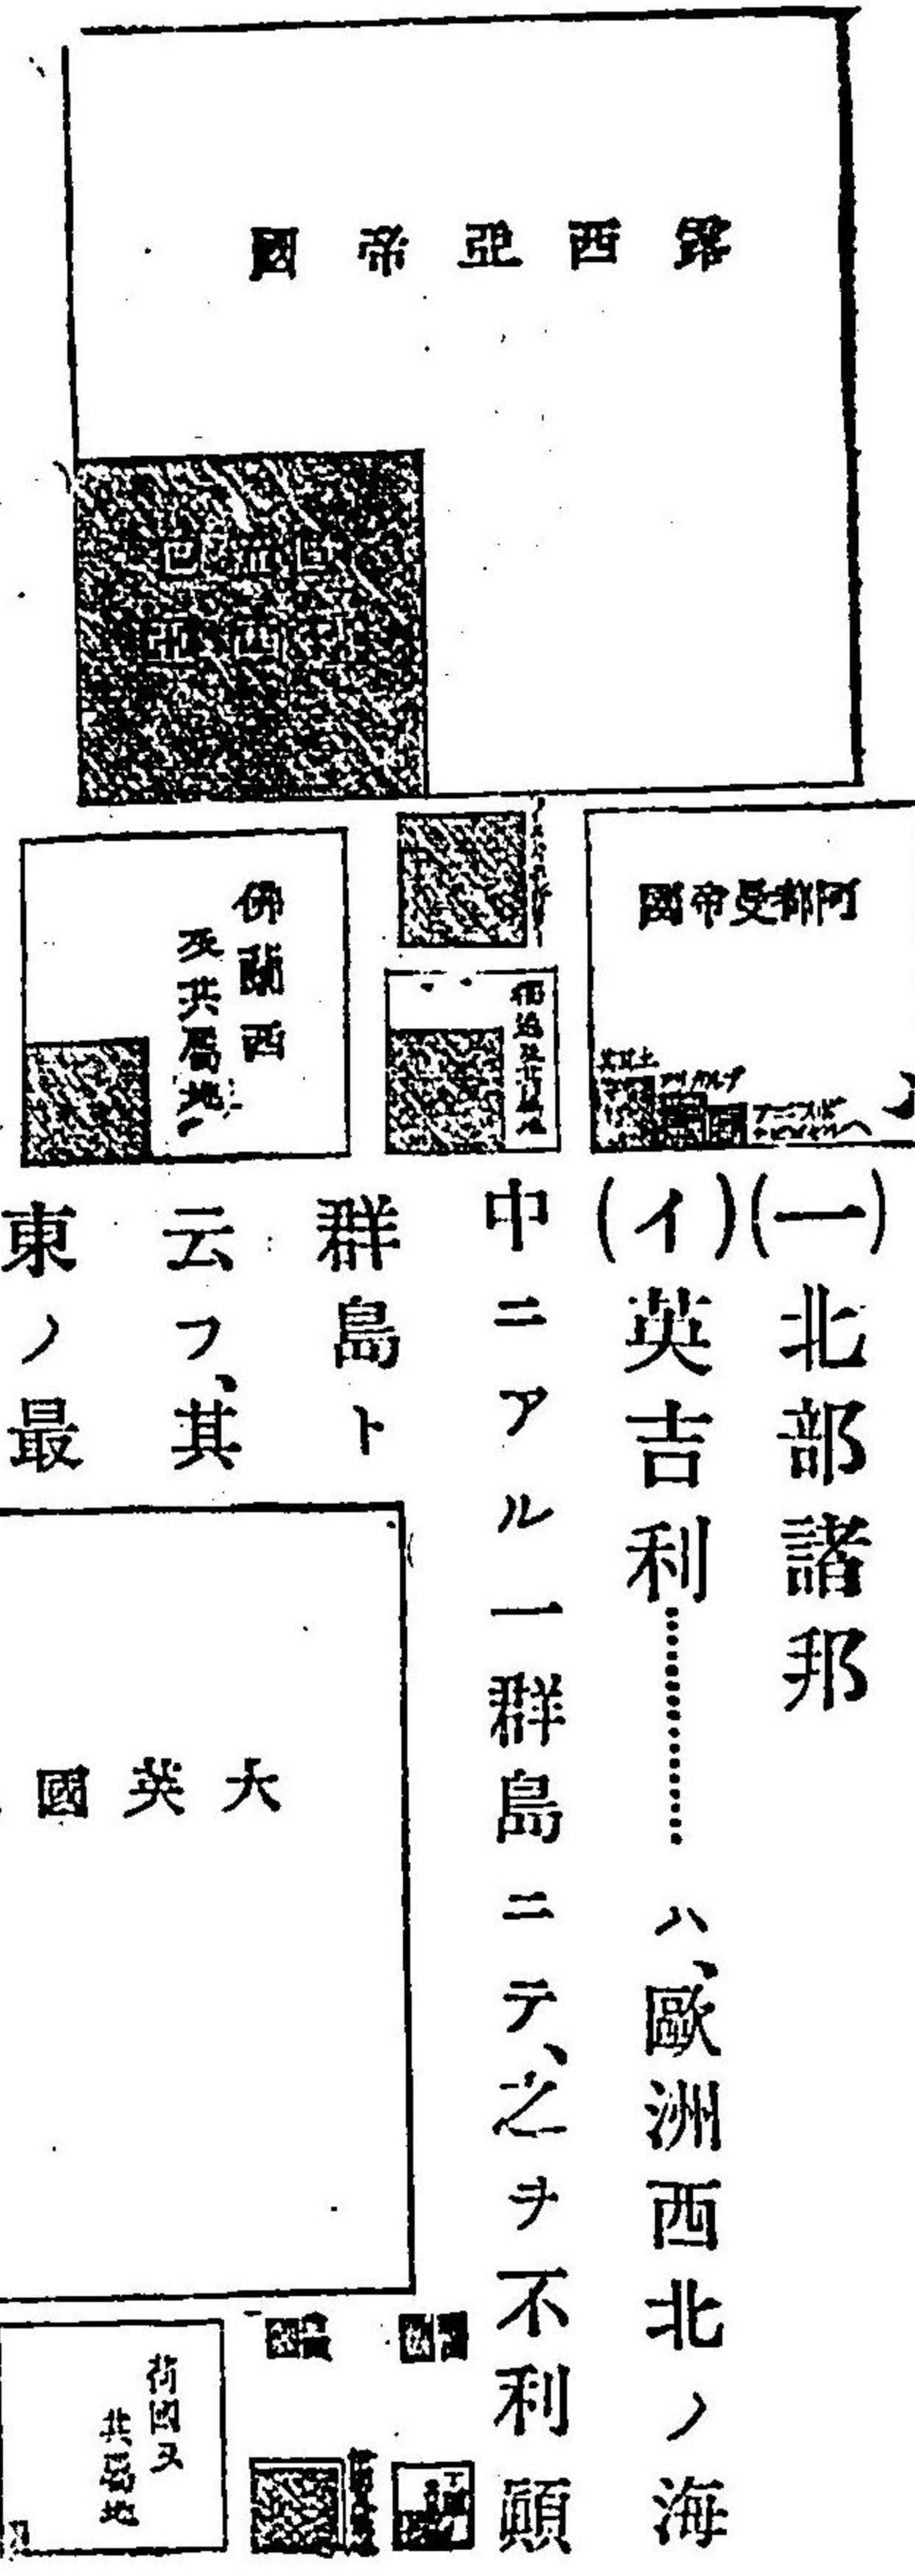 露西亞帝國
歐羅巴
露西亞
阿都曼帝國
佛蘭西
及其屬地
(一)北部諸邦
(イ)英吉利…………ハ、歐洲西北ノ海
中ニアル一群島ニテ、之ヲ不利顚
群島ト
云フ、其
東ノ最
大英國
荷國及
其屬地